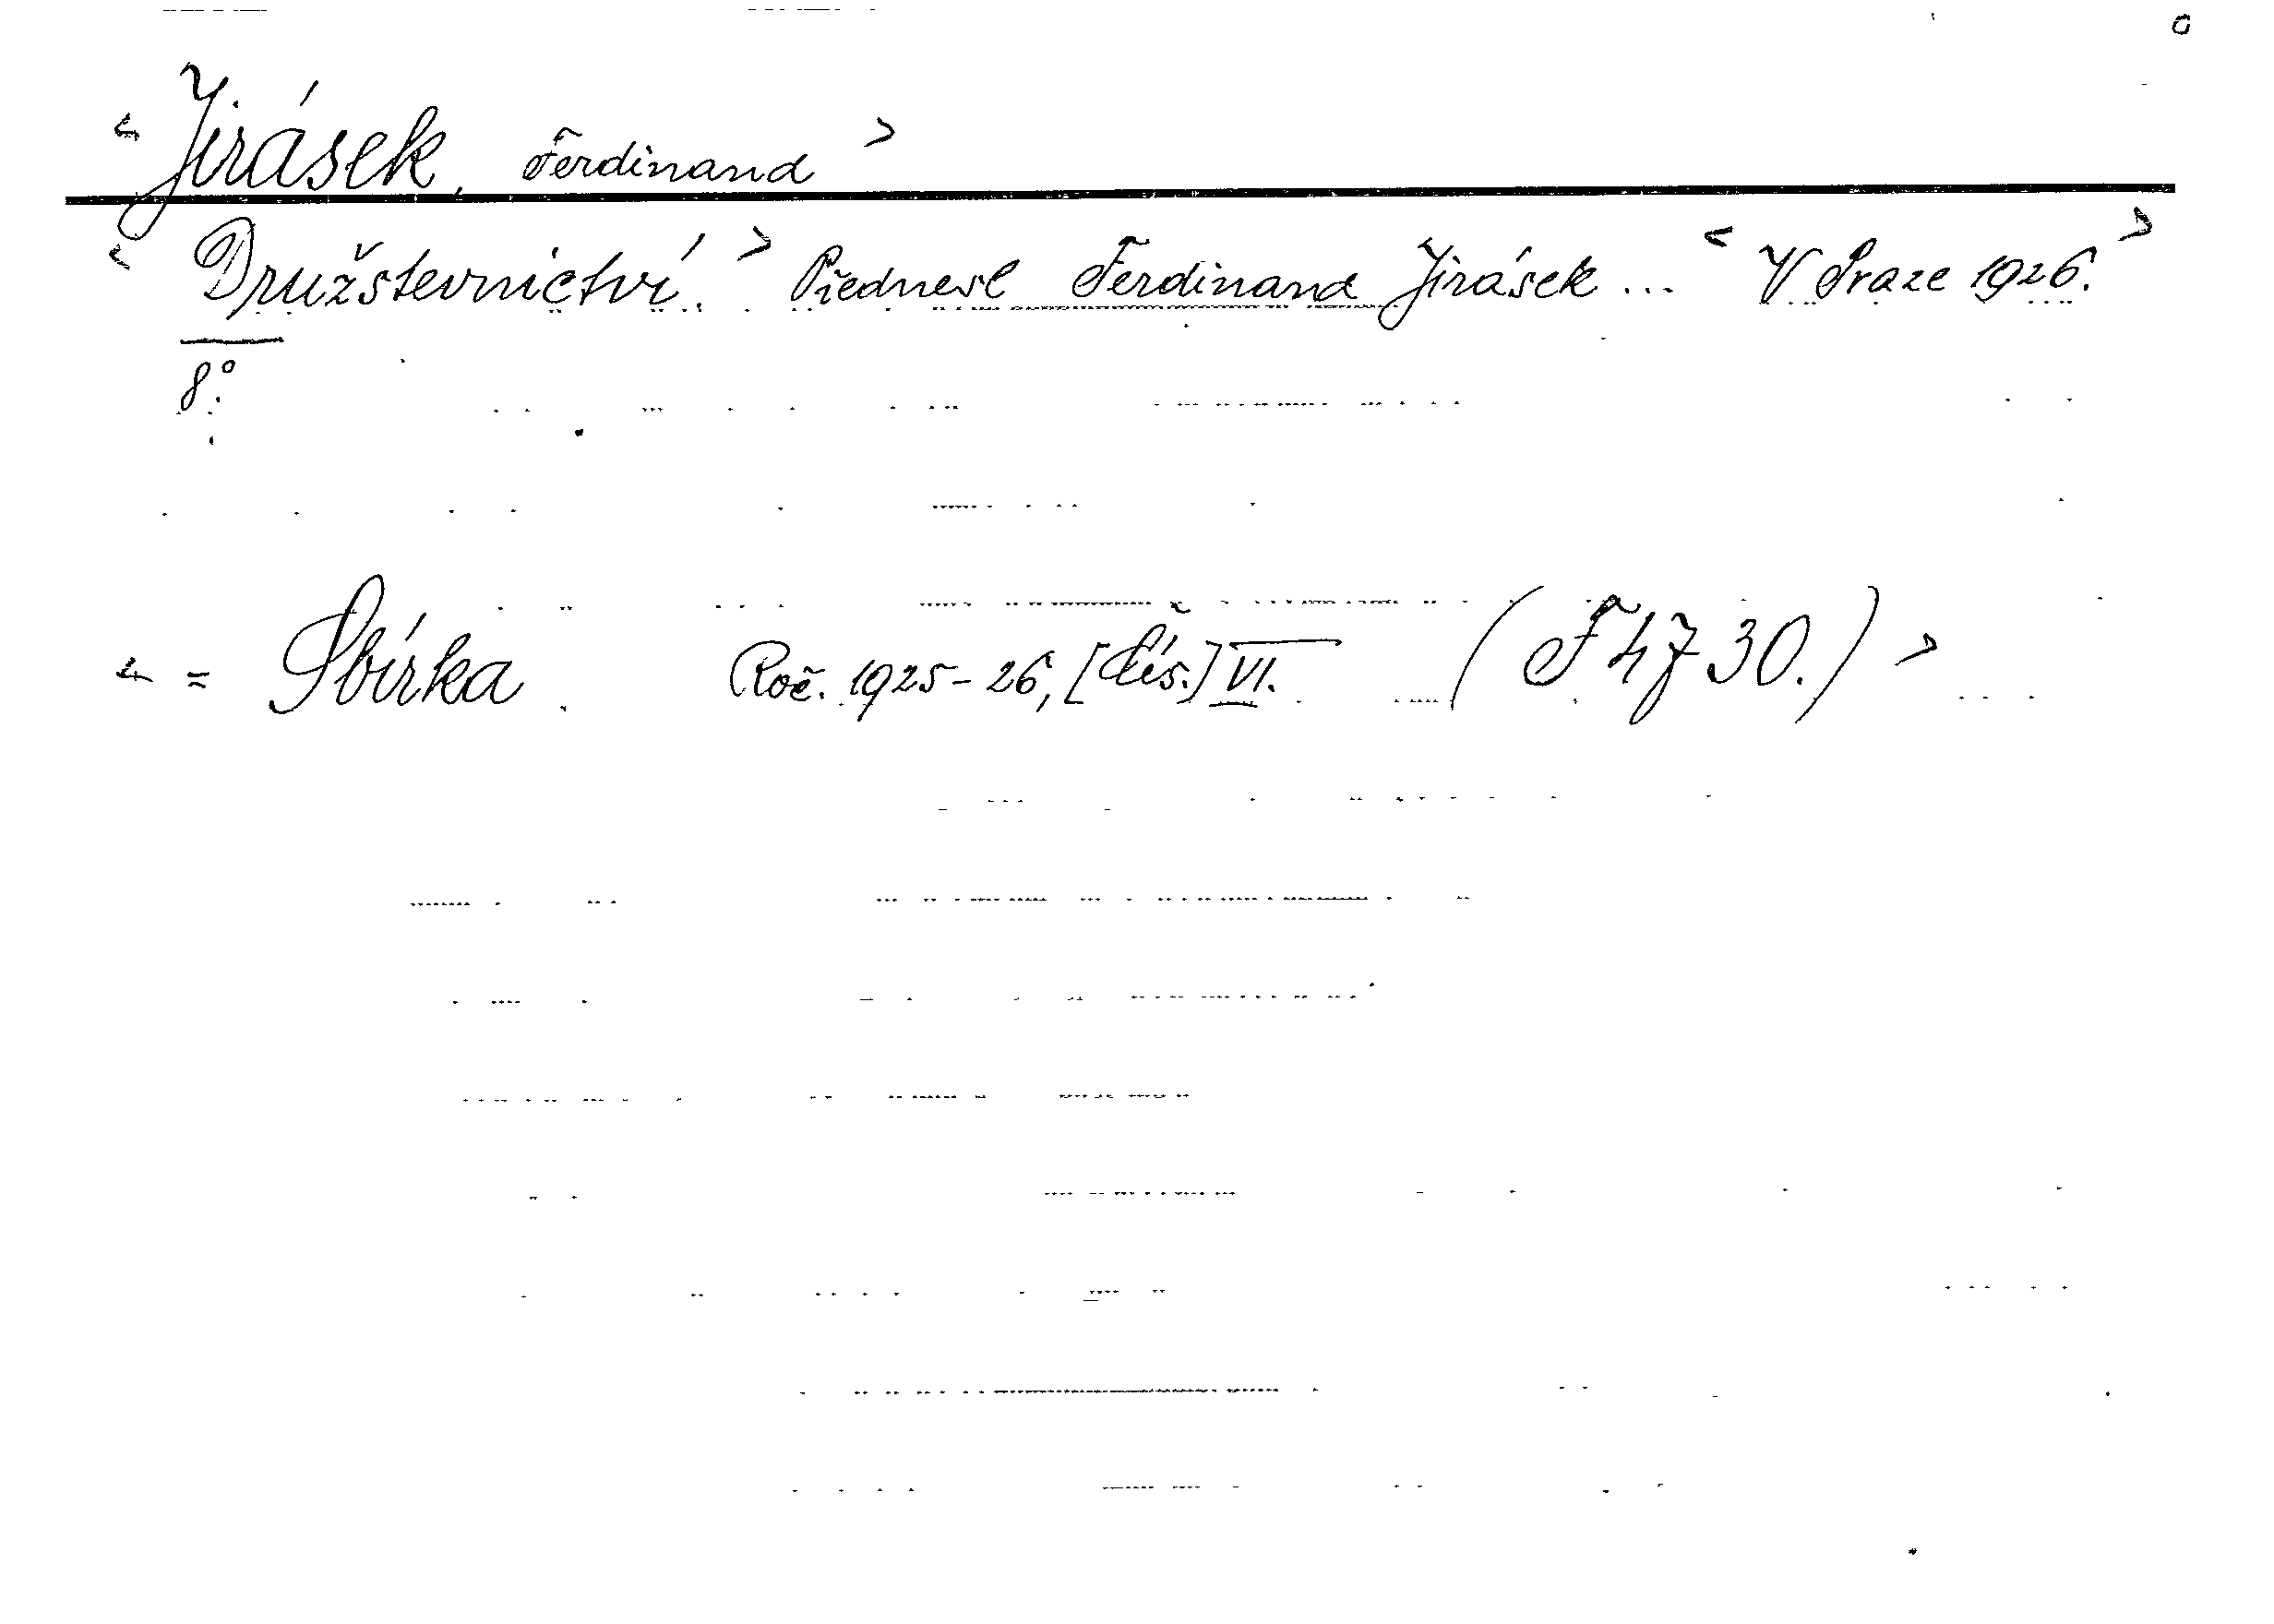 < Jirásek, Ferdinand >
< Družstevnictví. > Přednesl Ferdinand Jirásek ... < V Praze 1926. >
8°.
< = Sbírka Roč. 1925-26, [čís.] VI. (F 4730.) >